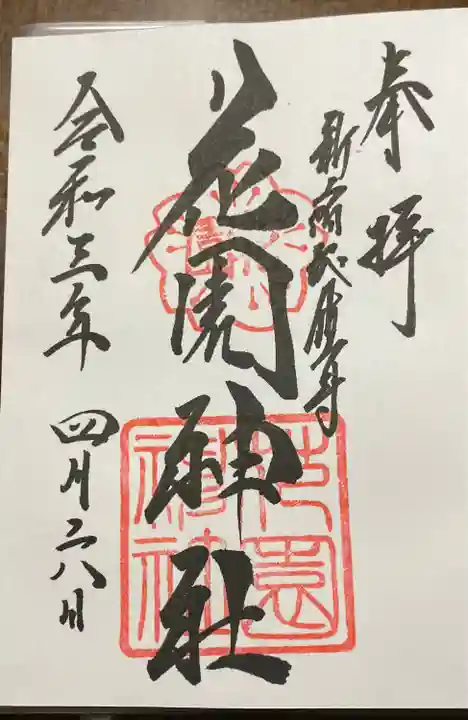 奉拝
新宿総鎮守
花園神社
花園神社
令和三年 四月二八日